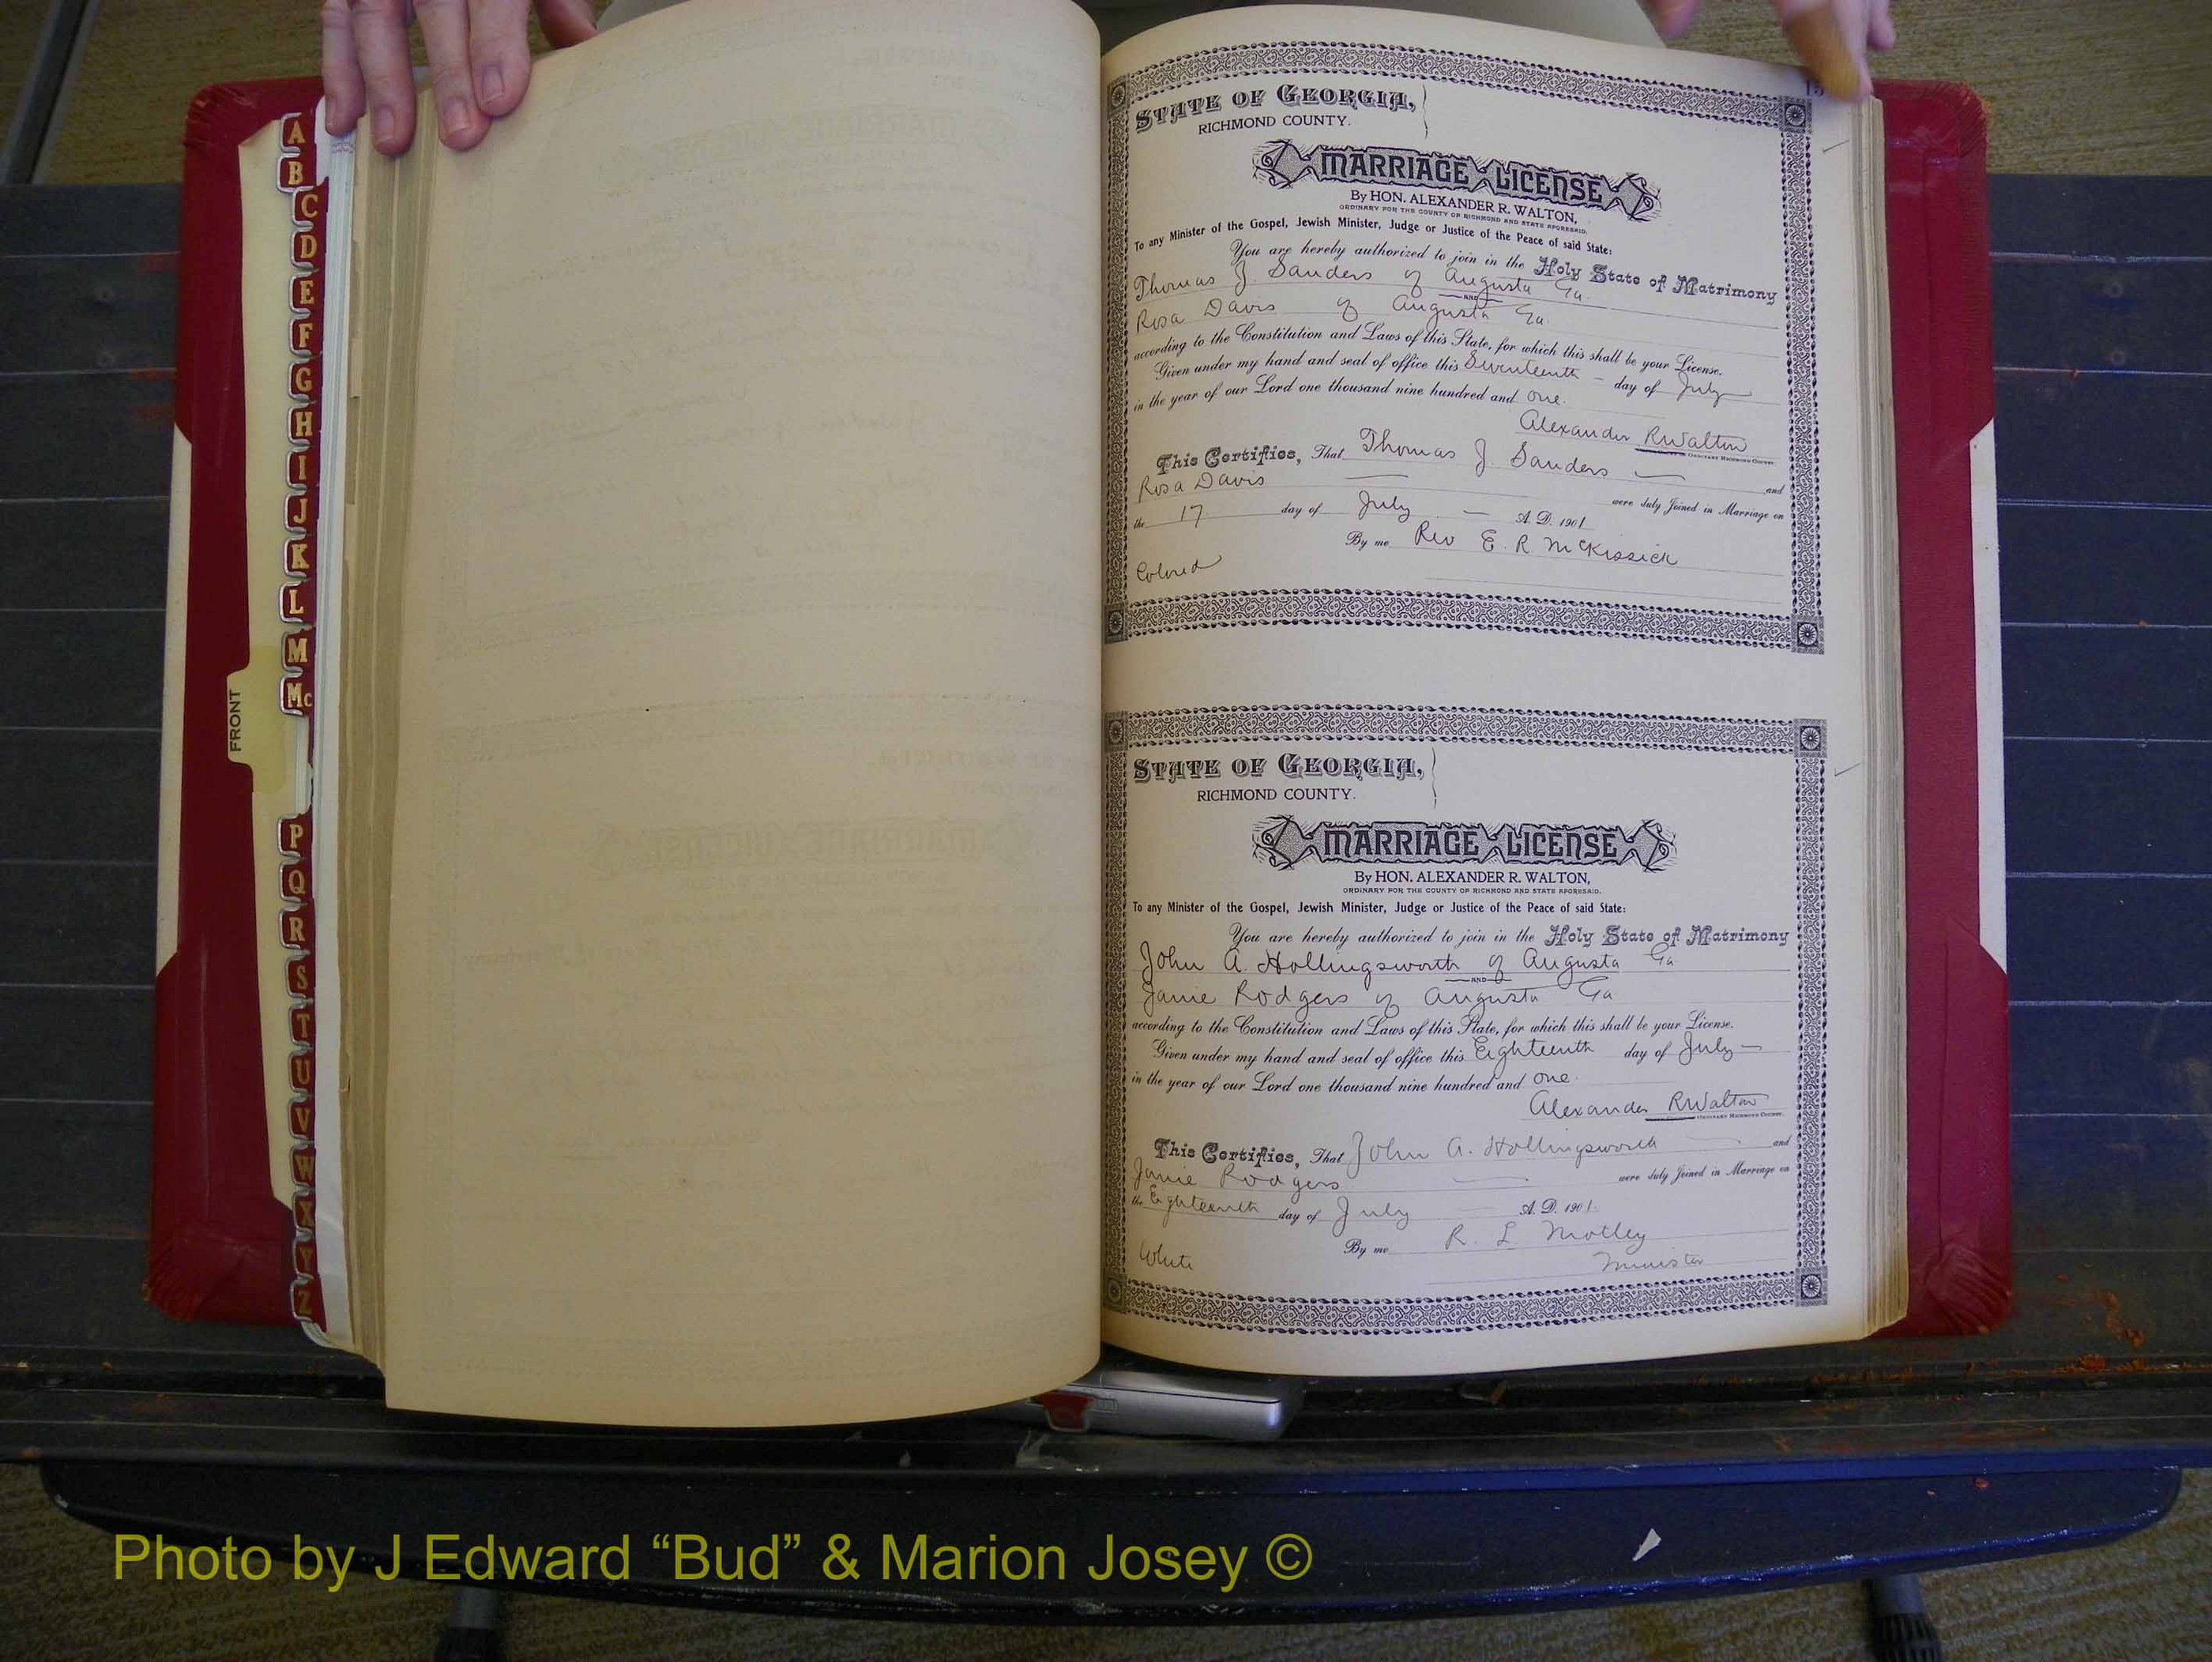 A
B
C
D
E
F
G
H
I
J
K
L
M
Mc
P
Q
R
S
T
U
V
W
X
Y
Z
FRONT
STATE OF GEORGIA,
RICHMOND COUNTY.
MARRIAGE LICENSE
By HON. ALEXANDER R. WALTON,
ORDINARY FOR THE COUNTY OF RICHMOND AND STATE AFORESAID.
To any Minister of the Gospel, Jewish Minister, Judge or Justice of the Peace of said State:
You are hereby authorized to join in the Holy State of Matrimony
Thomas J. Sanders of Augusta Ga.
AND
Rosa Davis of Augusta Ga.
according to the Constitution and Laws of this State, for which this shall be your License.
Given under my hand and seal of office this Seventeenth day of July
in the year of our Lord one thousand nine hundred and one.
Alexander R Walton
ORDINARY RICHMOND COUNTY.
This Certifies, That Thomas J. Sanders and
Rosa Davis were duly Joined in Marriage on
the 17 day of July A. D. 1901
By me Rev E. R. McKissick
Colored
STATE OF GEORGIA,
RICHMOND COUNTY.
MARRIAGE LICENSE
By HON. ALEXANDER R. WALTON,
ORDINARY FOR THE COUNTY OF RICHMOND AND STATE AFORESAID.
To any Minister of the Gospel, Jewish Minister, Judge or Justice of the Peace of said State:
You are hereby authorized to join in the Holy State of Matrimony
John A. Hollingsworth of Augusta Ga
AND
Janie Rodgers of Augusta Ga
according to the Constitution and Laws of this State, for which this shall be your License.
Given under my hand and seal of office this Eighteenth day of July
in the year of our Lord one thousand nine hundred and one.
Alexander R Walton
ORDINARY RICHMOND COUNTY.
This Certifies, That John A. Hollingsworth and
Janie Rodgers were duly Joined in Marriage on
the Eighteenth day of July A. D. 1901.
By me R. L. Motley
White Minister
Photo by J Edward “Bud” & Marion Josey ©